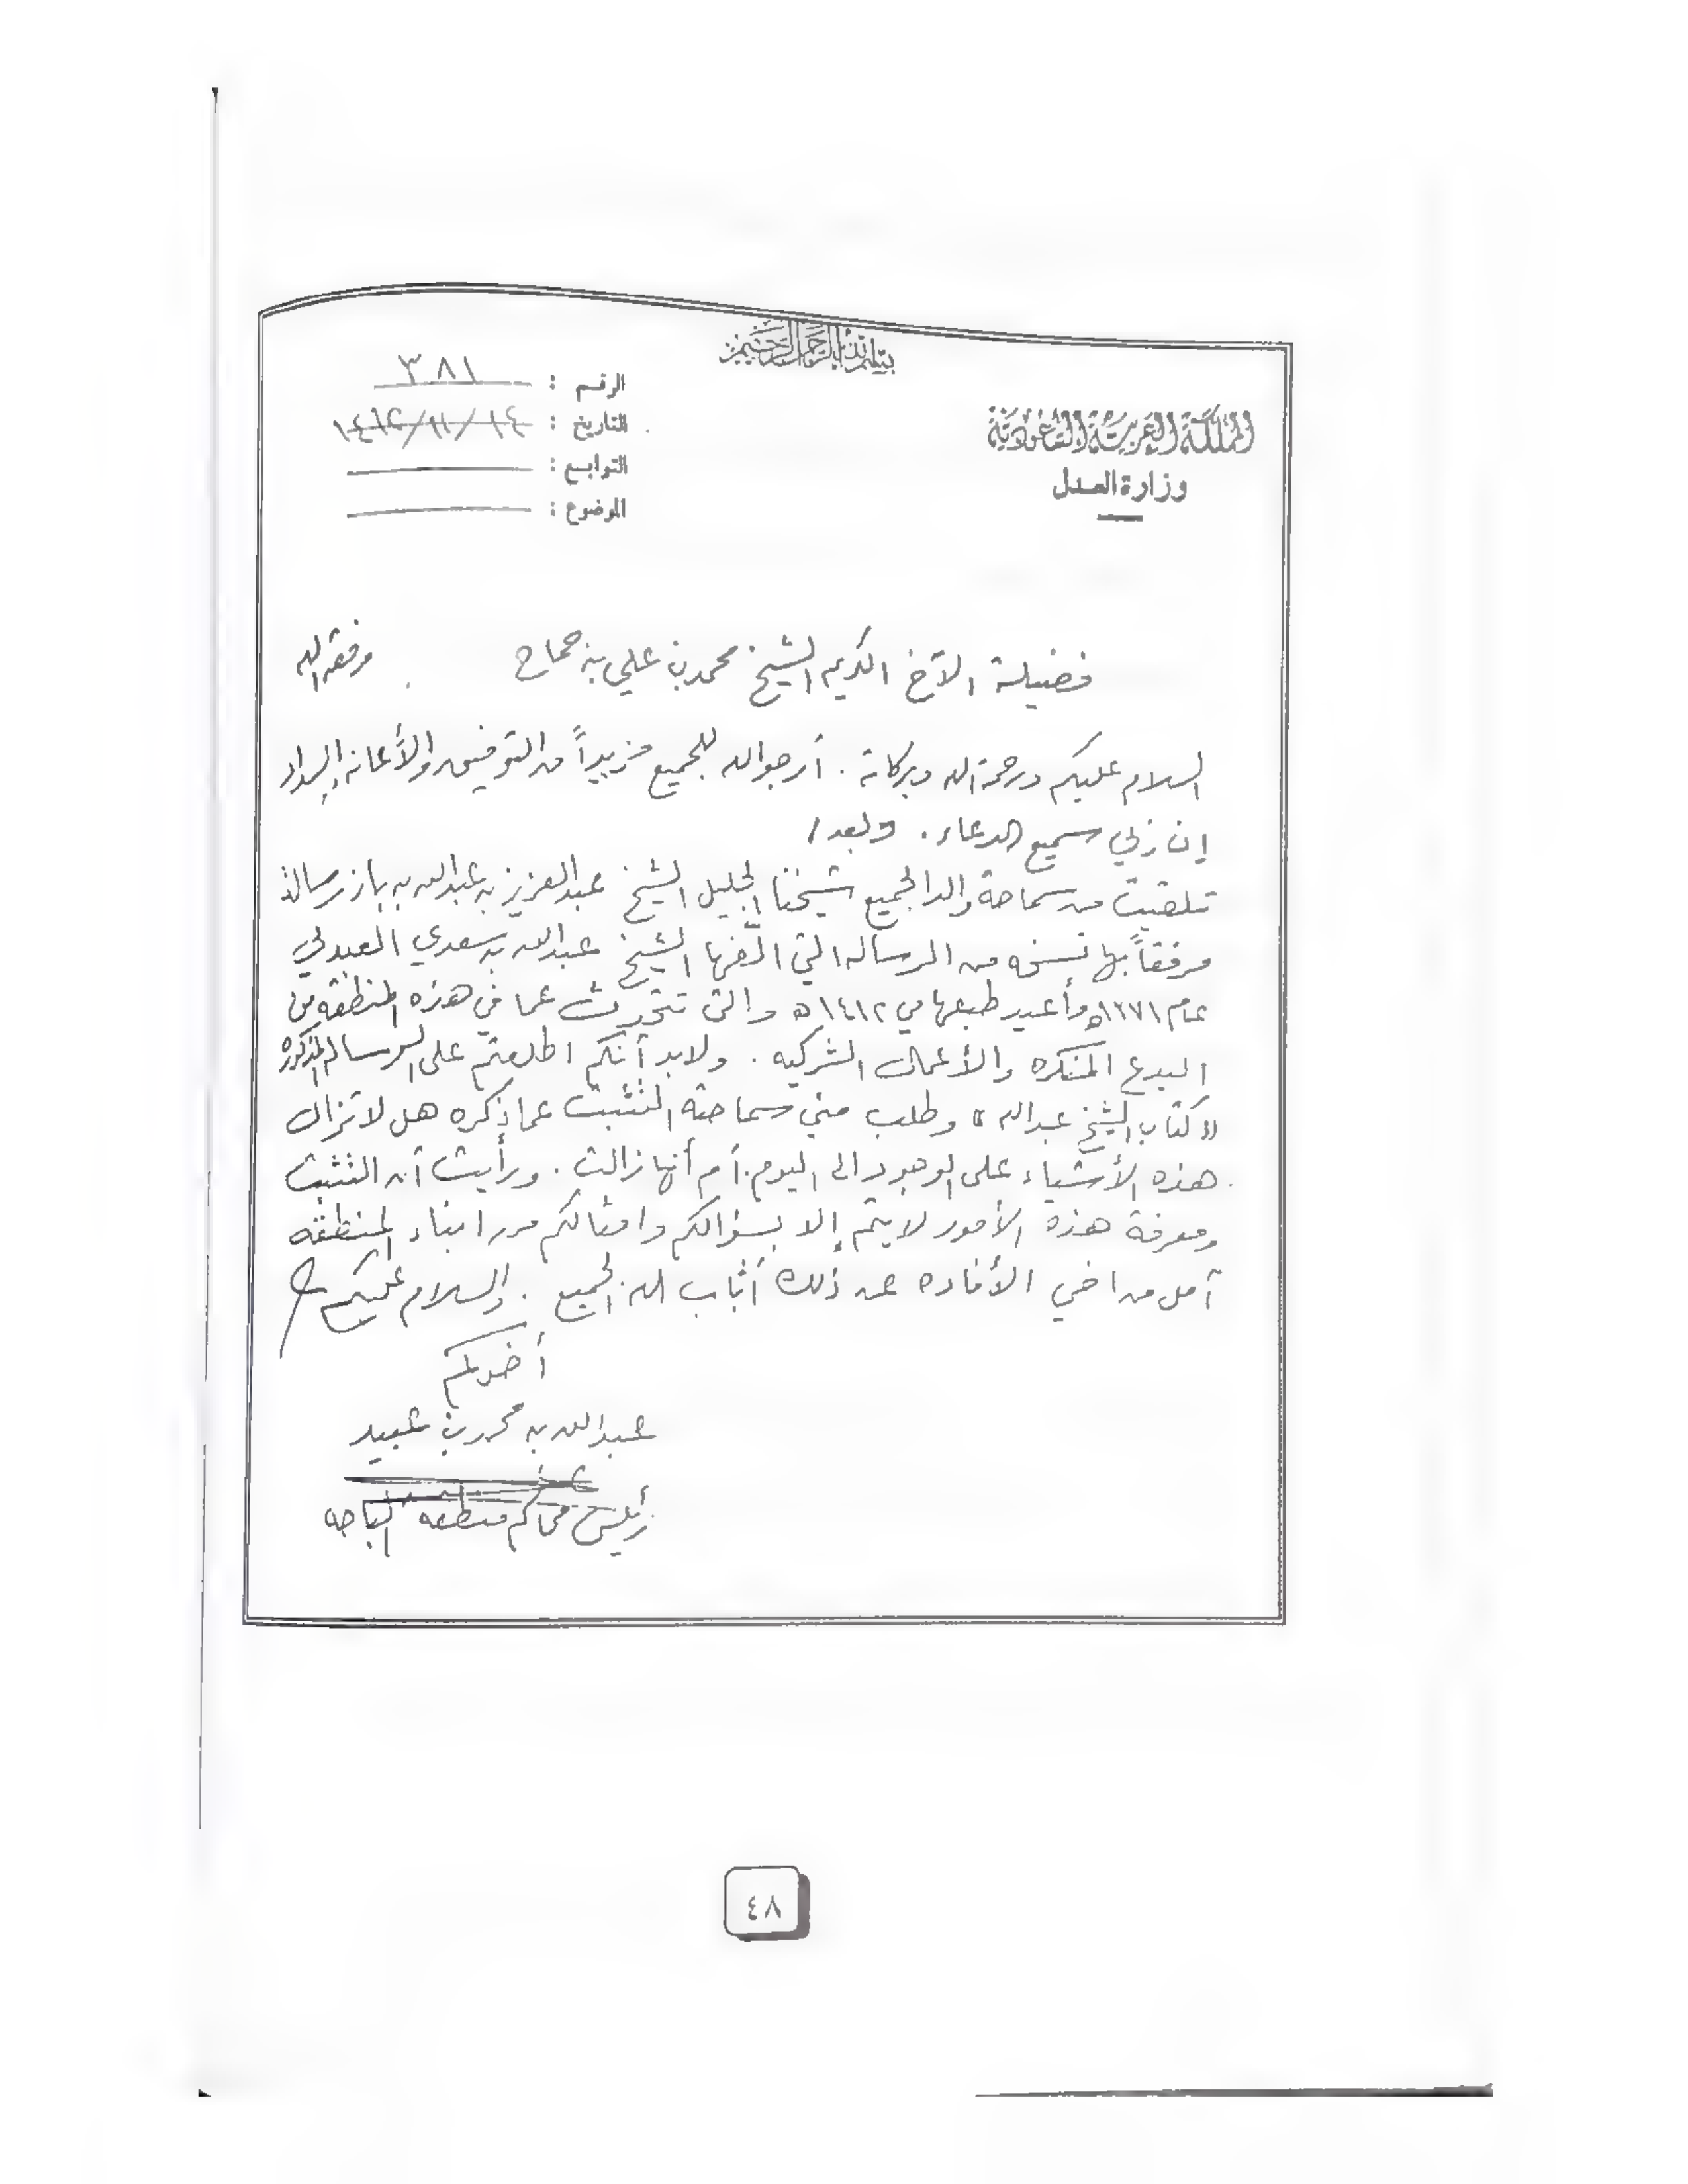 بسم الله الرحمن الرحيم
المملكة العربية السعودية
وزارة العدل
الرقم : ٣٨١
التاريخ : ١٤١٢/١١/١٤
التوابع :
الموضوع :
فضيلة الأخ الكريم الشيخ محمد بن علي بن جماح وفقه الله
السلام عليكم ورحمة الله وبركاته . أرجو الله للجميع مزيداً من التوفيق والأعانه والسداد
إن ربي سميع الدعاء . وبعد /
تلقيت من سماحة والد الجميع شيخنا الجليل الشيخ عبدالعزيز بن عبدالله بن باز رسالة
مرفقاً بها نسخه من الرساله التي ألفها الشيخ عبدالله بن سعدي العبدلي
عام ١٣٧١هـ وأعيد طبعها في ١٤١٢هـ والتي تتحدث عما في هذه المنطقه من
البدع المنكره والأعمال الشركيه . ولابد أنكم اطلعتم على الرساله المذكوره
« كتاب الشيخ عبدالله » وطلب مني سماحته التثبت عما ذكره هل لا تزال
هذه الأشياء على الوجود الى اليوم أم أنها زالت . ورأيت أن التثبت
ومعرفة هذه الأمور لا يتم إلا بسؤالكم وامثالكم من ابناء المنطقه
آمل من اخي الأفاده عن ذلك أثاب الله الجميع . والسلام عليكم
أخوكم
عبدالله بن محمد بن عبيد
رئيس محاكم منطقه الباحه
٤٨